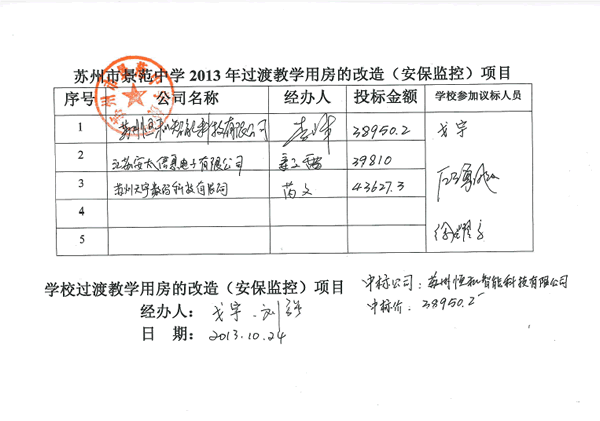 苏州市景范中学2013年过渡教学用房的改造（安保监控）项目
序号 公司名称 经办人 投标金额 学校参加议标人员
1 苏州恒和智能科技有限公司 38950.2 戈宇
2 江苏安太信息电子有限公司 39810
3 苏州天宇数码科技有限公司 43627.3
4
5
学校过渡教学用房的改造（安保监控）项目
中标公司：苏州恒和智能科技有限公司
经办人：戈宇
中标价：38950.2
日 期：2013.10.24